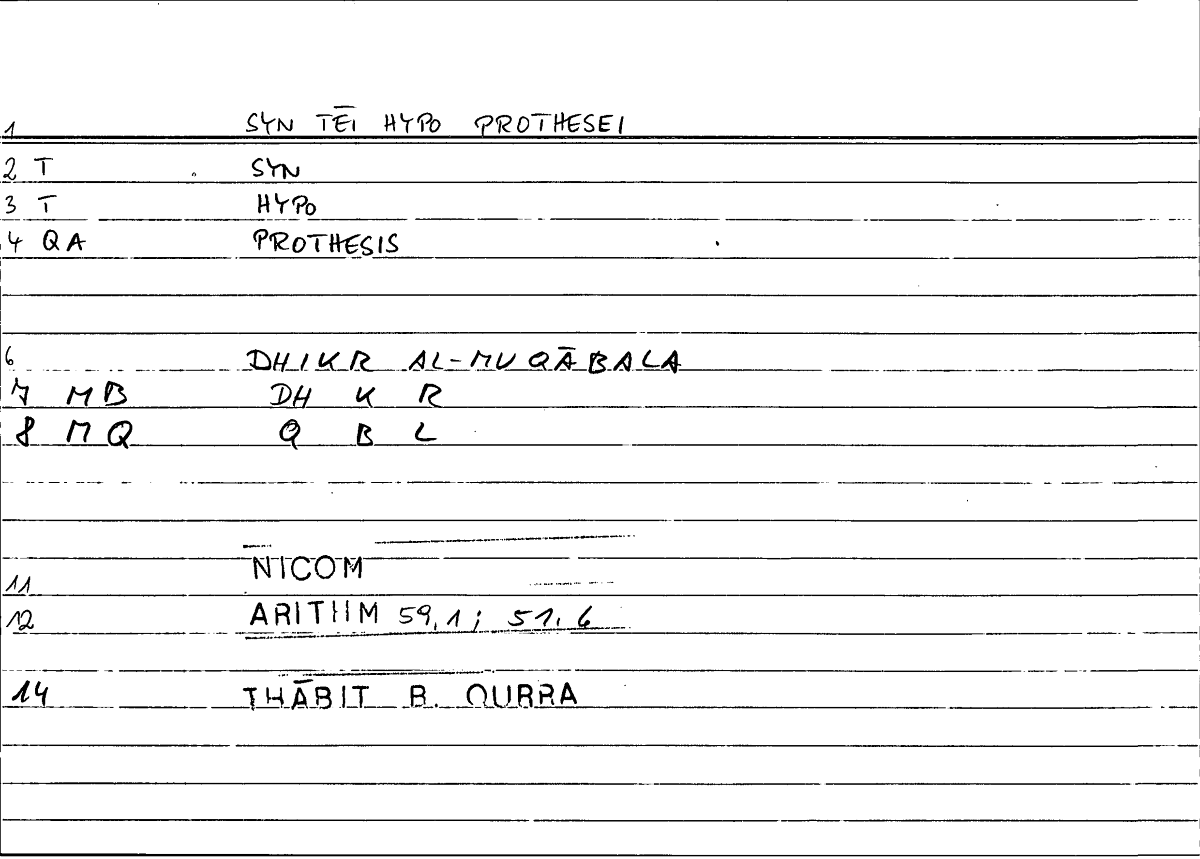 1 SYN TĒI HYPO PROTHESEI
2 T SYN
3 T HYPO
4 QA PROTHESIS
6 DHIKR AL-MUQĀBALA
7 MB DH K R
8 MQ Q B L
11 NICOM
12 ARITHM 59,1; 51.6
14 THĀBIT B. QURRA